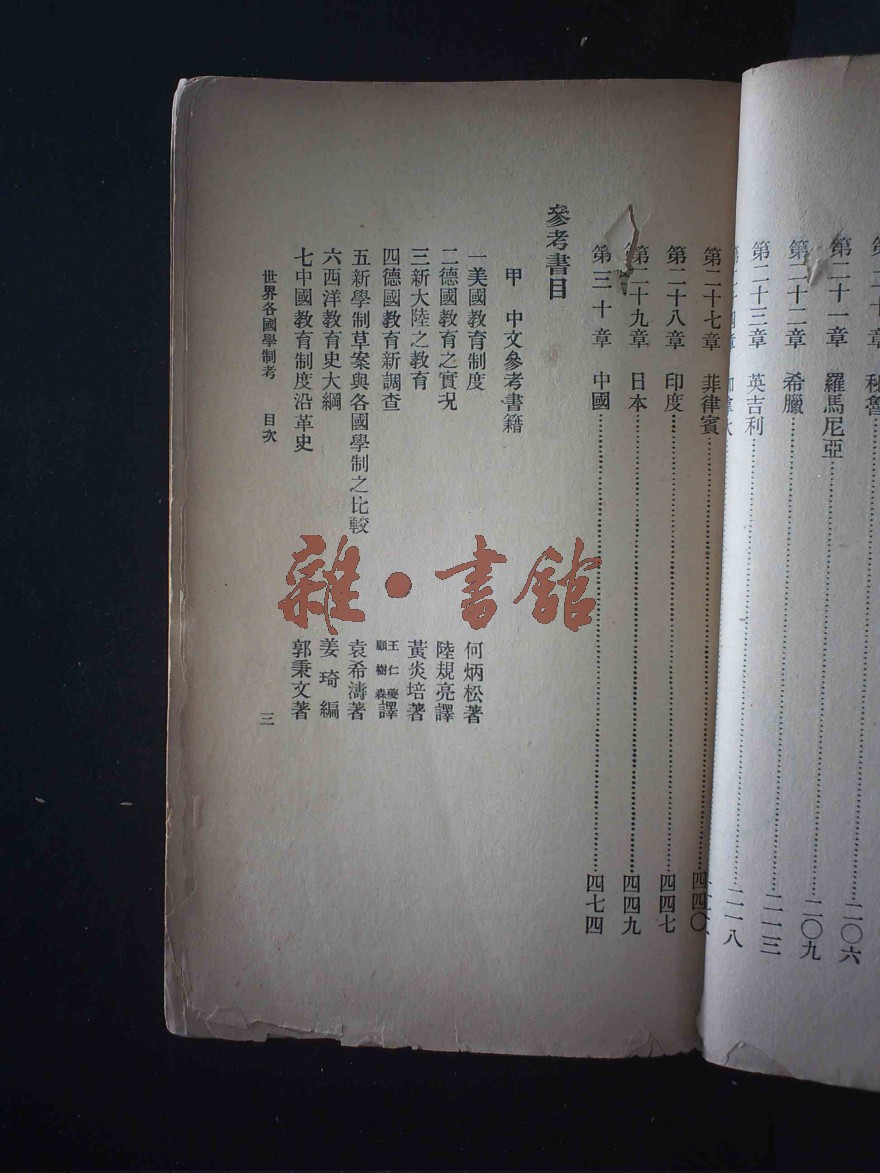 羅馬尼亞……二〇六
第二十一章
第二十二章 希臘……二〇九
第二十三章 英吉利……二一三
第二十七章 菲律賓……四四〇
第二十八章 印度……四四七
第二十九章 日本……四四九
第三十章 中國……四七四
參考書目
甲 中文參考書籍
一美國教育制度 何炳松著
二德國教育之實況 陸規亮譯
三新大陸之教育 黃炎培著
四德國教育新調查 王仁夔 顧樹森譯
五新學制草案與各國學制之比較 袁希濤著
六西洋教育史大綱 姜琦編
七中國教育制度沿革史 郭秉文著
世界各國學制考 目次 三
雜·書館